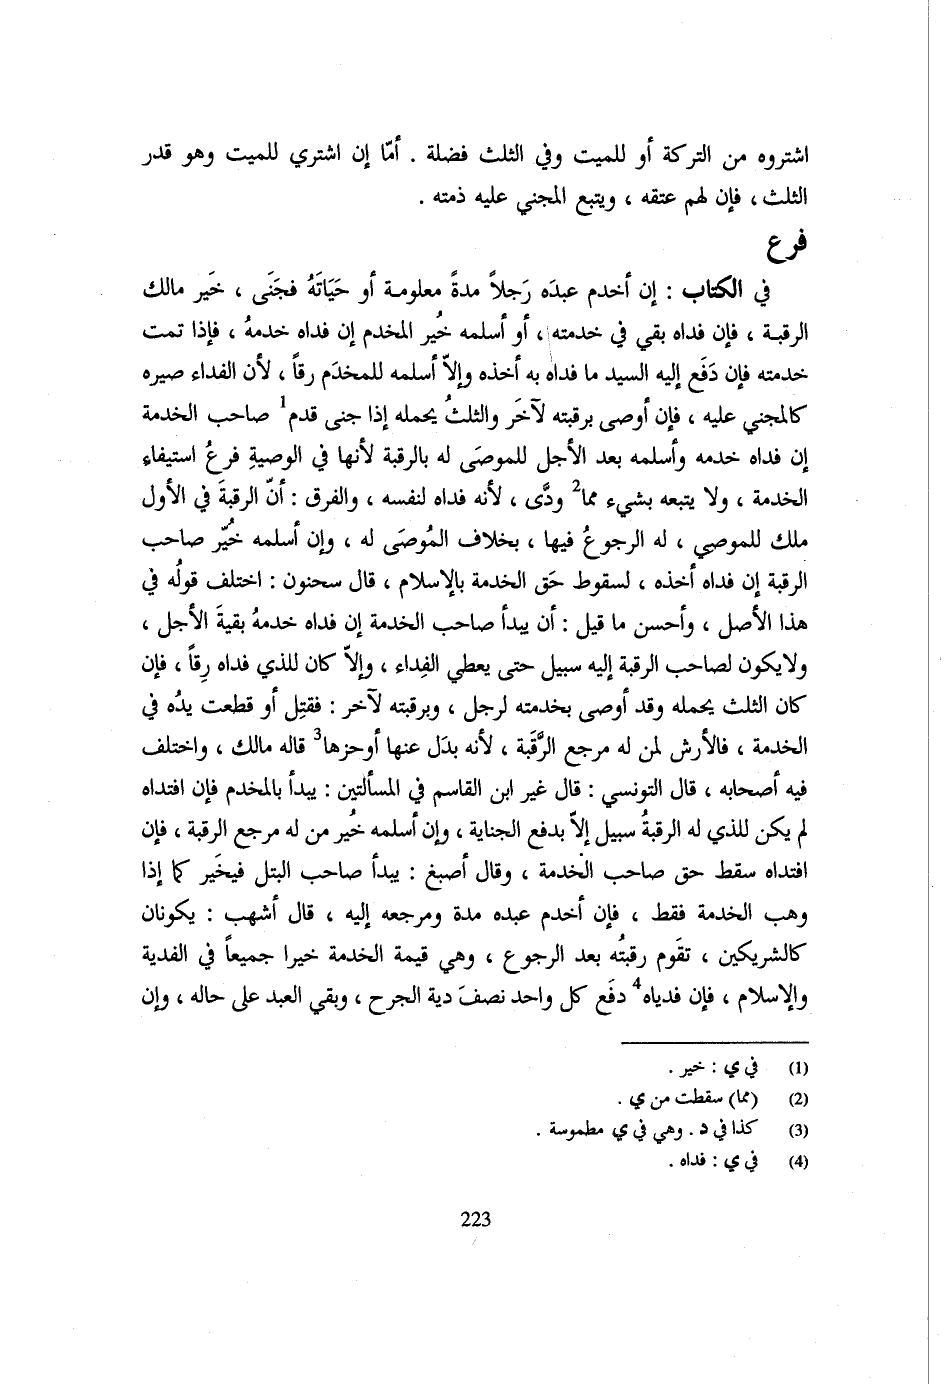 اشتروه من التركة أو للميت وفي الثلث فضلة . أمّا إن اشتري للميت وهو قدر
الثلث ، فإن لهم عتقه ، ويتبع المجني عليه ذمته .
فرع
في الكتاب : إن أخدم عبدَه رَجلاً مدةً معلومـة أو حَيَاتَهُ فجَنَى ، خَير مالك
الرقبـة ، فإن فداه بقي في خدمته ، أو أسلمه خُير المخدم إن فداه خدمهُ ، فإذا تمت
خدمته فإن دَفَع إليه السيد ما فداه به أخذه وإلاّ أسلمه للمخدَم رقاً ، لأن الفداء صيره
كالمجني عليه ، فإن أوصى برقبته لآخَر والثلثُ يحمله إذا جنى قدم1 صاحب الخدمة
إن فداه خدمه وأسلمه بعد الأجل للموصَى له بالرقبة لأنها في الوصيةِ فرعُ استيفاءِ
الخدمة ، ولا يتبعه بشيء مما2 ودَّى ، لأنه فداه لنفسه ، والفرق : أنّ الرقبةَ في الأول
ملك للموصي ، له الرجوعُ فيها ، بخلاف المُوصَى له ، وإن أسلمه خُيّر صاحب
الرقبة إن فداه أخذه ، لسقوط حَق الخدمة بالإسلام ، قال سحنون : اختلف قولُه في
هذا الأصل ، وأحسن ما قيل : أن يبدأ صاحب الخدمة إن فداه خدمهُ بقيةَ الأجل ،
ولايكون لصاحب الرقبة إليه سبيل حتى يعطي الفِداء ، وإلاّ كان للذي فداه رِقاً ، فإن
كان الثلث يحمله وقد أوصى بخدمته لرجل ، وبرقبته لآخر : فقتِل أو قطعت يدُه في
الخدمة ، فالأرش لمن له مرجع الرَّقَبة ، لأنه بدَل عنها أوحزها3 قاله مالك ، واختلف
فيه أصحابه ، قال التونسي : قال غير ابن القاسم في المسألتين : يبدأ بالمخدم فإن افتداه
لم يكن للذي له الرقبةُ سبيل إلاّ بدفع الجناية ، وإن أسلمه خُير من له مرجع الرقبة ، فإن
افتداه سقط حق صاحب الخدمة ، وقال أصبغ : يبدأ صاحب البتل فيخَير كما إذا
وهب الخدمة فقط ، فإن أخدم عبده مدة ومرجعه إليه ، قال أشهب : يكونان
كالشريكين ، تقَوم رقبتُه بعد الرجوع ، وهي قيمة الخدمة خيرا جميعاً في الفدية
والإسلام ، فإن فدياه4 دفَع كل واحد نصفَ دية الجرح ، وبقي العبد على حاله ، وإن
(1) في ي : خير .
(2) (مما) سقطت من ي .
(3) كذا في د . وهي في ي مطموسة .
(4) في ي : فداه .
223